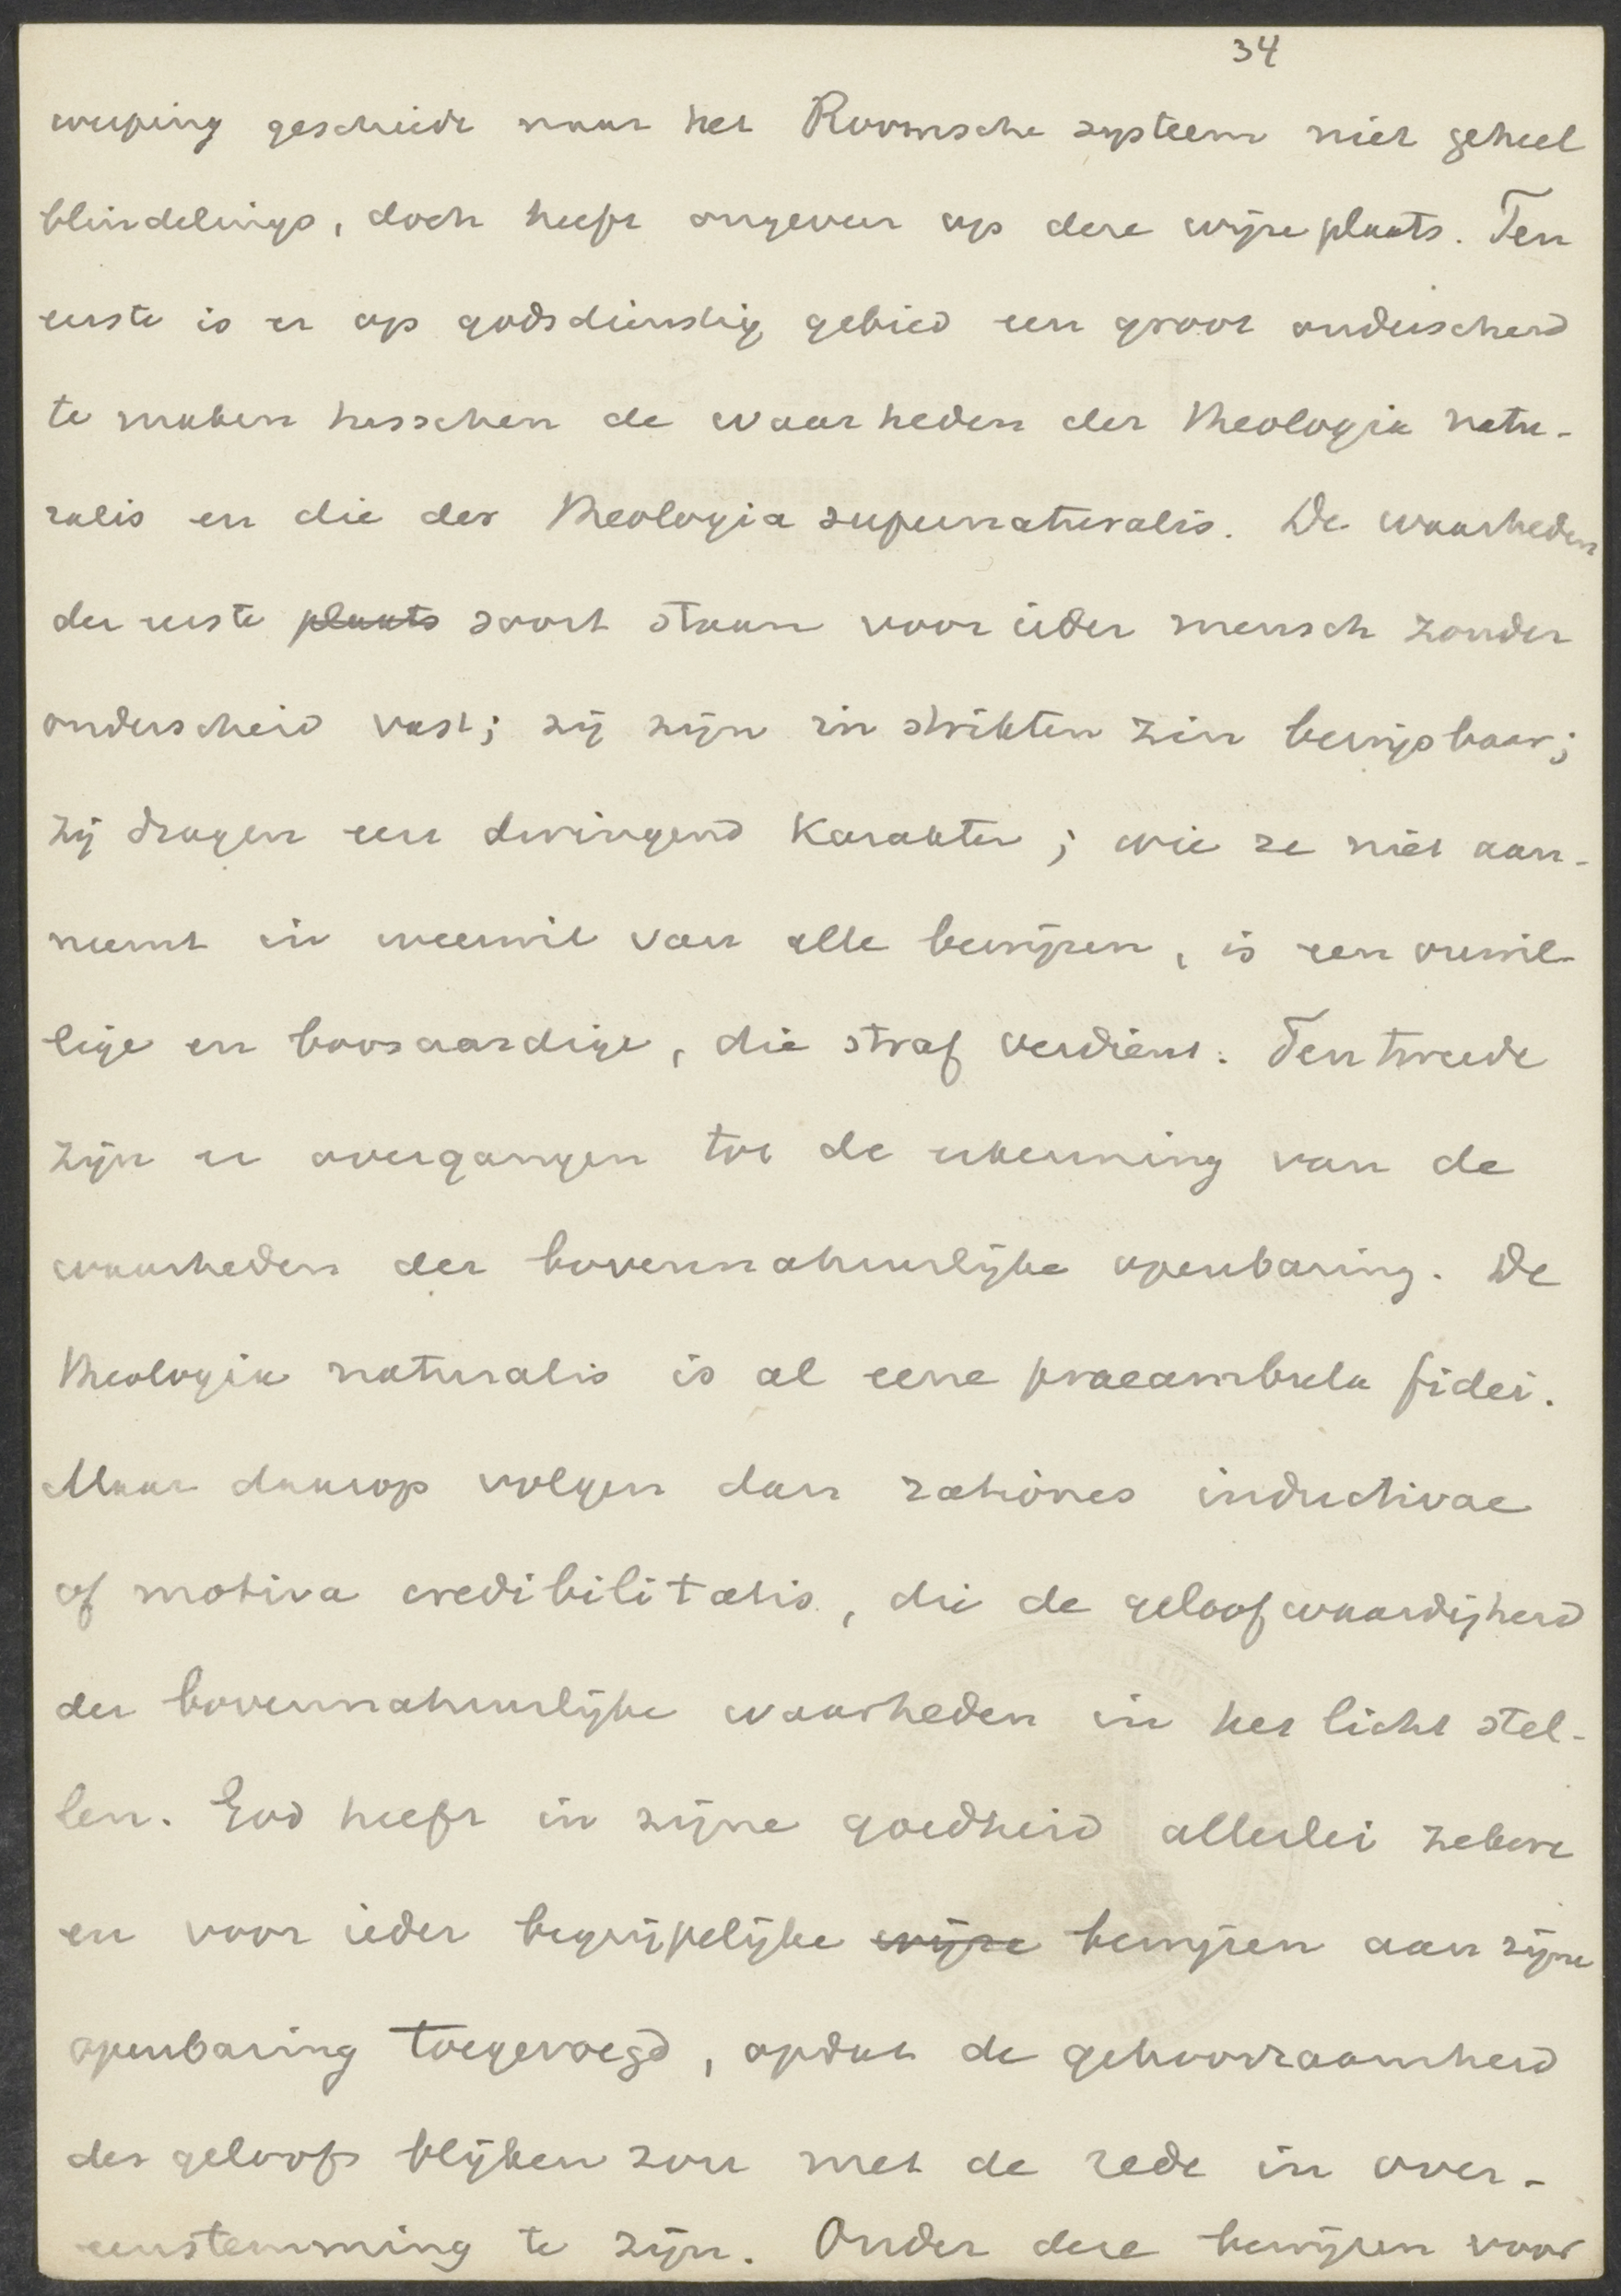 34
werping geschiedt naar het Roomsche systeem niet geheel
blindelings, doch heeft ongeveer op deze wijze plaats. Ten
eerste is er op godsdienstig gebied een groot onderscheid
te maken tusschen de waarheden der theologia natu-
ralis en die der theologia supernaturalis. De waarheden
der eerste plaats soort staan voor ieder mensch zonder
onderscheid vast; zij zijn in strikten zin bewijsbaar;
zij dragen een dwingend karakter; wie ze niet aan-
neemt in weerwil van alle bewijzen, is een onwil-
lige en boosaardige, die straf verdient. Ten tweede
zijn er overgangen tot de erkenning van de
waarheden der bovennatuurlijke openbaring. De
theologia naturalis is al eene praeambula fidei.
Maar daarop volgen dan rationes inductivae
of motiva credibilitatis, die de geloofwaardigheid
der bovennatuurlijke waarheden in het licht stel-
len. God heeft in zijne goedheid allerlei zekere
en voor ieder begrijpelijke wijze bewijzen aan zijne
openbaring toegevoegd, opdat de gehoorzaamheid
des geloofs blijken zou met de rede in over-
eenstemming te zijn. Onder deze bewijzen voor